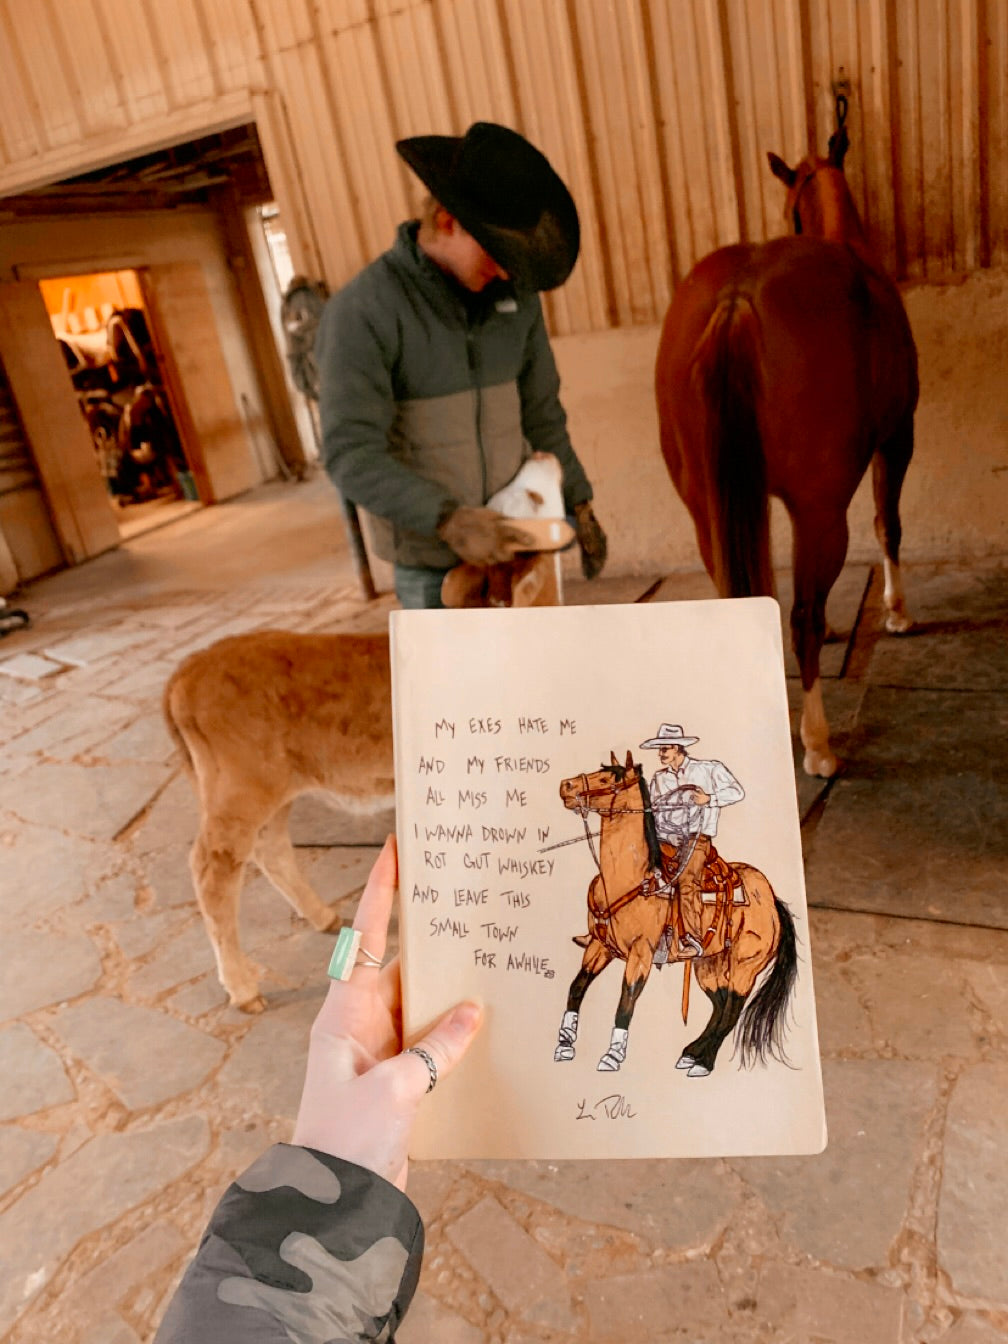 MY EXES HATE ME
AND MY FRIENDS
ALL MISS ME
I WANNA DROWN IN
ROT GUT WHISKEY
AND LEAVE THIS
SMALL TOWN
FOR AWHILE